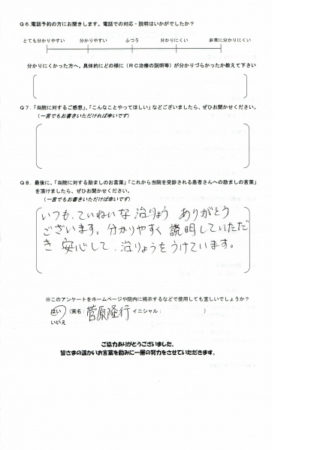 Q6.電話予約の方にお聞きします。電話での対応・説明はいかがでしたか？
とても分かりやすい　分かりやすい　ふつう　分かりにくい　非常に分かりにくい
分かりにくかった方へ、具体的にどの様に（ＲＣ治療の説明等）が分かりづらかったか教えて下さい
Q7.「当院に対するご感想」、「こんなことやってほしい」などございましたら、ぜひお聞かせください。
（一言でもお書きいただければ幸いです）
Q8.最後に、「当院に対する励ましのお言葉」「これから当院を受診される患者さんへの励ましの言葉」
を頂けましたら、ぜひお聞かせください。
（一言でもお書きいただければ幸いです）
いつも、ていねいな 治りょう ありがとう
ございます。分かりやすく 説明していただ
き 安心して、治りょうをうけています。
※このアンケートをホームページや院内に掲示するなどで使用しても宜しいでしょうか？
はい　（実名：菅原隆行　イニシャル：　）
いいえ
ご協力ありがとうございました。
皆さまの温かいお言葉を励みに一層の努力をさせていただきます。